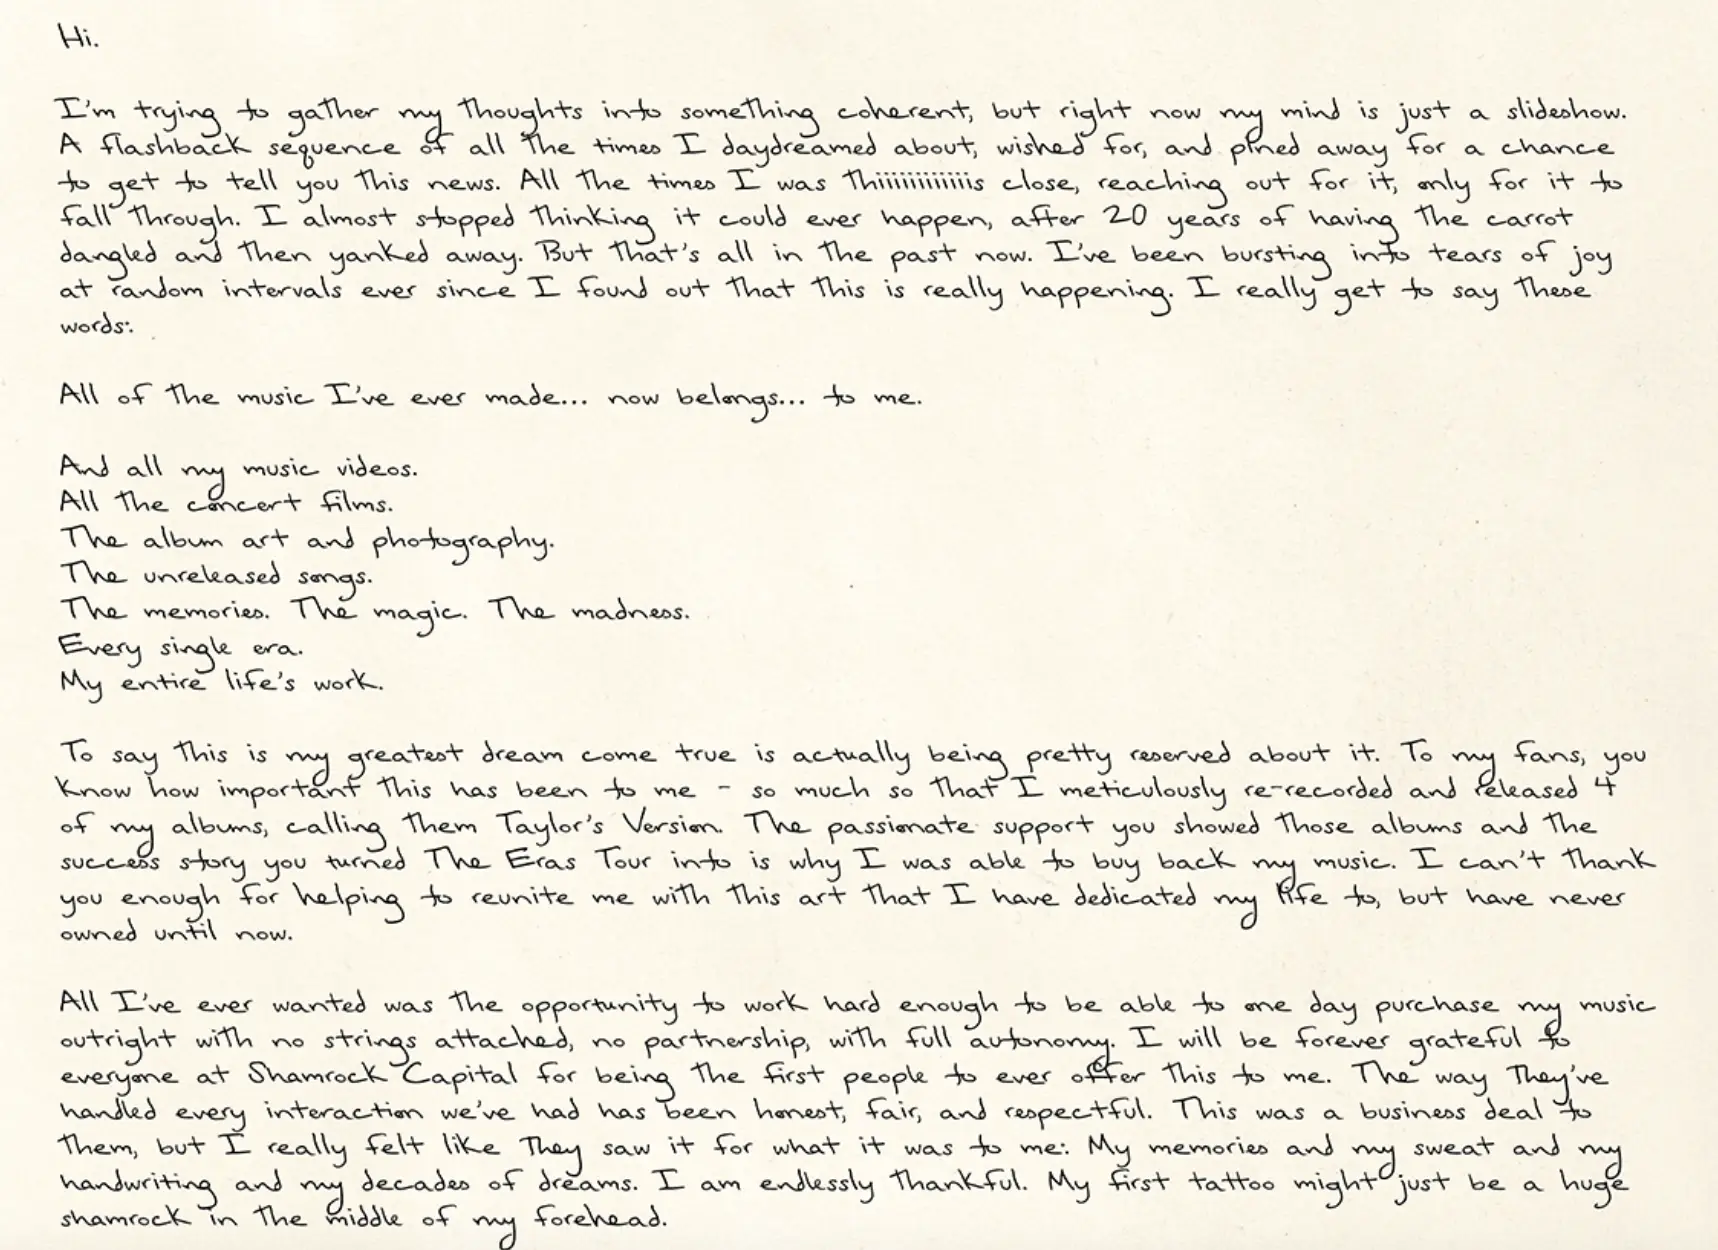 Hi.
I'm trying to gather my thoughts into something coherent, but right now my mind is just a slideshow.
A flashback sequence of all the times I daydreamed about, wished for, and pined away for a chance
to get to tell you this news. All the times I was thiiiiiiiiiiiis close, reaching out for it, only for it to
fall through. I almost stopped thinking it could ever happen, after 20 years of having the carrot
dangled and then yanked away. But that's all in the past now. I've been bursting into tears of joy
at random intervals ever since I found out that this is really happening. I really get to say these
words:
All of the music I've ever made... now belongs... to me.
And all my music videos.
All the concert films.
The album art and photography.
The unreleased songs.
The memories. The magic. The madness.
Every single era.
My entire life's work.
To say this is my greatest dream come true is actually being pretty reserved about it. To my fans, you
know how important this has been to me - so much so that I meticulously re-recorded and released 4
of my albums, calling them Taylor's Version. The passionate support you showed those albums and the
success story you turned The Eras Tour into is why I was able to buy back my music. I can't thank
you enough for helping to reunite me with this art that I have dedicated my life to, but have never
owned until now.
All I've ever wanted was the opportunity to work hard enough to be able to one day purchase my music
outright with no strings attached, no partnership, with full autonomy. I will be forever grateful to
everyone at Shamrock Capital for being the first people to ever offer this to me. The way they've
handled every interaction we've had has been honest, fair, and respectful. This was a business deal to
them, but I really felt like they saw it for what it was to me: My memories and my sweat and my
handwriting and my decades of dreams. I am endlessly thankful. My first tattoo might just be a huge
shamrock in the middle of my forehead.